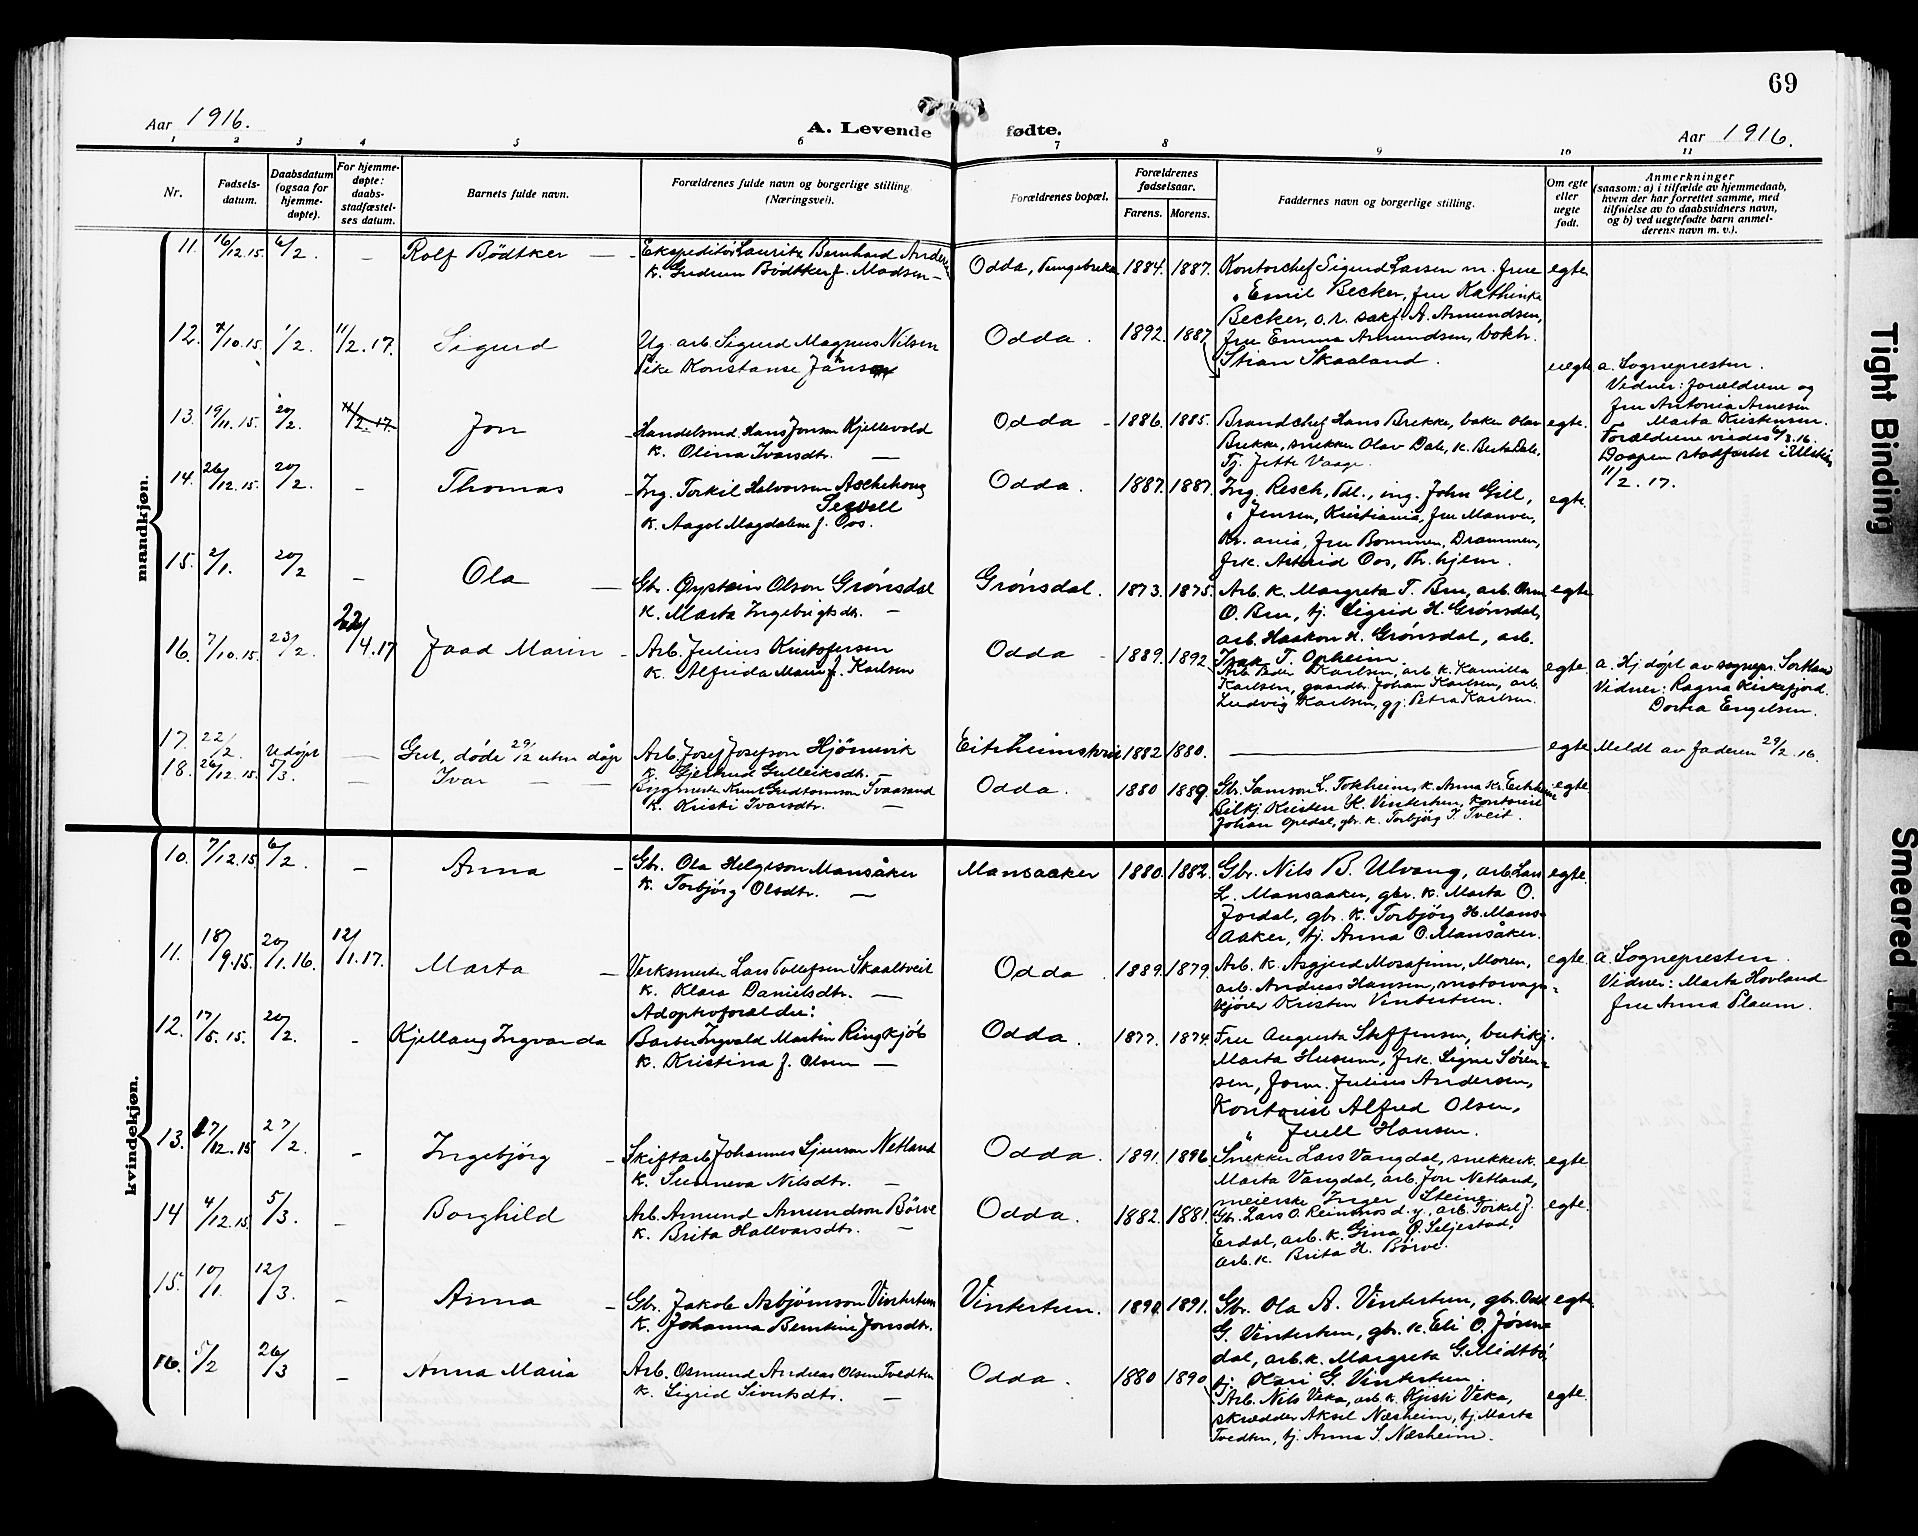 69
Aar 1916.
A. Levende fødte.
Aar 1916.
1 2 3 4 5 6 7 8 9 10 11
Nr.
Fødsels-
datum.
Daabsdatum
(ogsaa for
hjemme-
døpte).
For hjemme-
døpte:
daabs-
stadfæstel-
ses datum.
Barnets fulde navn.
Forældrenes fulde navn og borgerlige stilling.
(Næringsvei).
Forældrenes bopæl.
Forældrenes
fødselsaar.
Farens. Morens.
Faddernes navn og borgerlige stilling.
Om egte
eller
uegte
født.
Anmerkninger
(saasom: a) i tilfælde av hjemmedaab,
hvem der har forrettet samme, med
tilføielse av to daabsvidners navn,
og b) ved uegtefødte barn anmel-
derens navn m. v.).
mandkjøn.
11. 16/12.15. 6/2. – Rolf Bödtker –
Ekspeditör Lauritz Bernhard
K. Gudrun Bödtker f. Madsen –
Odda, 1884. 1887.
Kontorchef Sigurd Larsen m. frue
" Emil Becker, fru Kathinka
Becker, o.r. sakf. A. Amundsen,
fru Emma Amundsen, bokh.
Stian Skaaland.
egte
12. 7/10.15. 1/2. 11/2.17. Sigurd
Ug. arb. Sigurd Magnus Nilsen
Pike Konstanse
Odda. 1892. 1887
uegte
a. Sognepresten.
Vidner: forældrene og
fru Antonia Arnesen
" Marta Kristensen.
Forældrene viedes 6/3.16.
Daapen stadfæstet i
11/2.17.
13. 19/11.15. 20/2. 11/2.17. Jon
Handelsmd. Hans Jonson Kjellevold
K. Olina Ivarsdtr. –
Odda – 1886. 1885.
Brandchef Hans Brekke, baker Olav
Brekke, snekker Olav Dale, k. Berta Dale,
Tj. Jette Vaage.
egte.
14. 26/12.15. 20/2. – Thomas
Ing. Torkil Halvorsen Aschehoug
K. Aagot Magdalene f. Oos.
Odda. 1887. 1887.
Ing. Resch, Odl., ing. John Gill,
" Jensen, Kristiania, fru Manver,
Kr.ania, fru Bommen, Drammen,
frk. Astrid Oos, Th.hjem.
egte.
15. 2/1. 20/2 – Ola –
Gbr. Øystein Olson Grönsdal
K. Marta Ingebrigtsdtr. –
Grönsdal. 1873. 1875.
Arb. K. Margreta T. Bru, arb. Orm
O. Bru, tj. Sigrid H. Grönsdal,
arb. Haakon H. Grönsdal, arb.
Isak T. Opheim.
egte
16. 7/10.15. 23/2. 22/4.17 Jaad Marin –
Arb. Julius Kristofersen
K. Alfrida Marie f. Karlsen
Odda – 1889. 1892
Arb. Peder Karlsen, arb. k. Kamilla
Karlsen, gaardbr. Johan Karlsen, arb.
Ludvig Karlsen, gj. Petra Karlsen.
egte.
a. Hj.döpt av sognepr.
Vidner: Ragna Kirkefjord.
Dortea Engelsen.
17. 22/2. Udöpt – Gut, döde 29/2 uten dåp
Arb. Josef Josefson Hjömevik
K. Gjertrud Gulleiksdtr. –
1882 1880. –
egte
Meldt av faderen 29/2.16.
18. 26/12.15. 5/3. – Ivar –
Bygmester Knut Gudtormson Tvaasand
K. Kristi Ivarsdtr. –
Odda. 1880 1889
Gbr. Samson L. Tokheim, k. Anna Kr. Eitrheim
Bilkj. Kristen K. Vintertun, kontorist
Johan Opedal, gbr. k. Torbjörg I. Tveit.
egte
kvindekjøn.
10. 7/12.15. 6/2. – Anna –
Gbr. Ola Helgeson Mansåker
K. Torbjörg Olsdtr. –
Mansaaker 1880. 1882.
Gbr. Nils B. Ulvang, arb. Lars
L. Mansaaker, gbr. k. Marta O.
Jordal, gbr. k. Torbjörg H. Mans-
aaker, tj. Anna O. Mansåker.
egte.
11. 18/9.15. 20/1.16. 12/1.17. Marta –
Verksmester Lars Tollefsen Skaaltveit
K. Klara Danielsdtr. –
Odda 1889. 1879.
Arb. K. Asgjerd Mosafinn, Moren,
arb. Andreas Hansen, motorvogn-
kjörer Kristen Vintertun.
egte.
a. Sognepresten.
Vidner: Marta Hovland
fru Anna Plaum.
12. 17/5.15. 20/2. – Kjellaug Ingvarda
Adoptivforældre:
Barber Ingvald Martin Ringkjöb
K. Kristina f. Olsen –
Odda. 1877. 1874.
Fru Augusta Steffensen, butikkj.
Marta Husum, frk. Signe Sören-
sen, form. Julius Andersen,
Kontorist Alfred Olsen,
" Juell Hansen.
13. 27/12.15 27/2. – Ingebjörg –
Skiftarb. Johannes Sjurson Netland
K. Sunneva Nilsdtr. –
Odda. 1891. 1896.
Snekker Lars Vangdal, snekkerk.
Marta Vangdal, arb. Jon Netland,
meierske Inger Steine.
egte
14 4/12.15. 5/3. – Borghild
Arb. Amund Amundson Börve
K. Brita Hallvarsdtr. –
Odda. 1882. 1881.
Gbr. Lars O. Reinsnos d.y., arb. Torkel J.
Erdal, arb. k. Gina O. Seljestad,
arb. k. Brita H. Börve.
egte.
15. 10/1. 12/3. – Anna –
Gbr. Jakob Asbjörnson Vintertun
K. Johanna Berntine Jonsdtr.
Vintertun. 1890. 1891.
Gbr. Ola A. Vintertun, gbr. Odd
G. Vintertun, gbr. k. Eli O. Jösen-
dal, arb. k. Margreta G. Midtbö,
tj. Kari G. Vintertun.
egte.
16. 5/2 26/3 – Anna Maria
Arb. Osmund Andreas Olsen Tvedten
K. Sigrid Sivertsdtr. –
Odda. 1880 1890
Arb. Nils Veka, arb. k. Kjisti Veka,
skrædder Aksel Næsheim, tj. Marta
Tvedten, tj. Anna S. Næsheim.
egte.
Tight Binding
Smeared